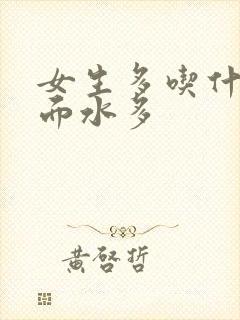 女生多喫什
而水多
黄啓哲